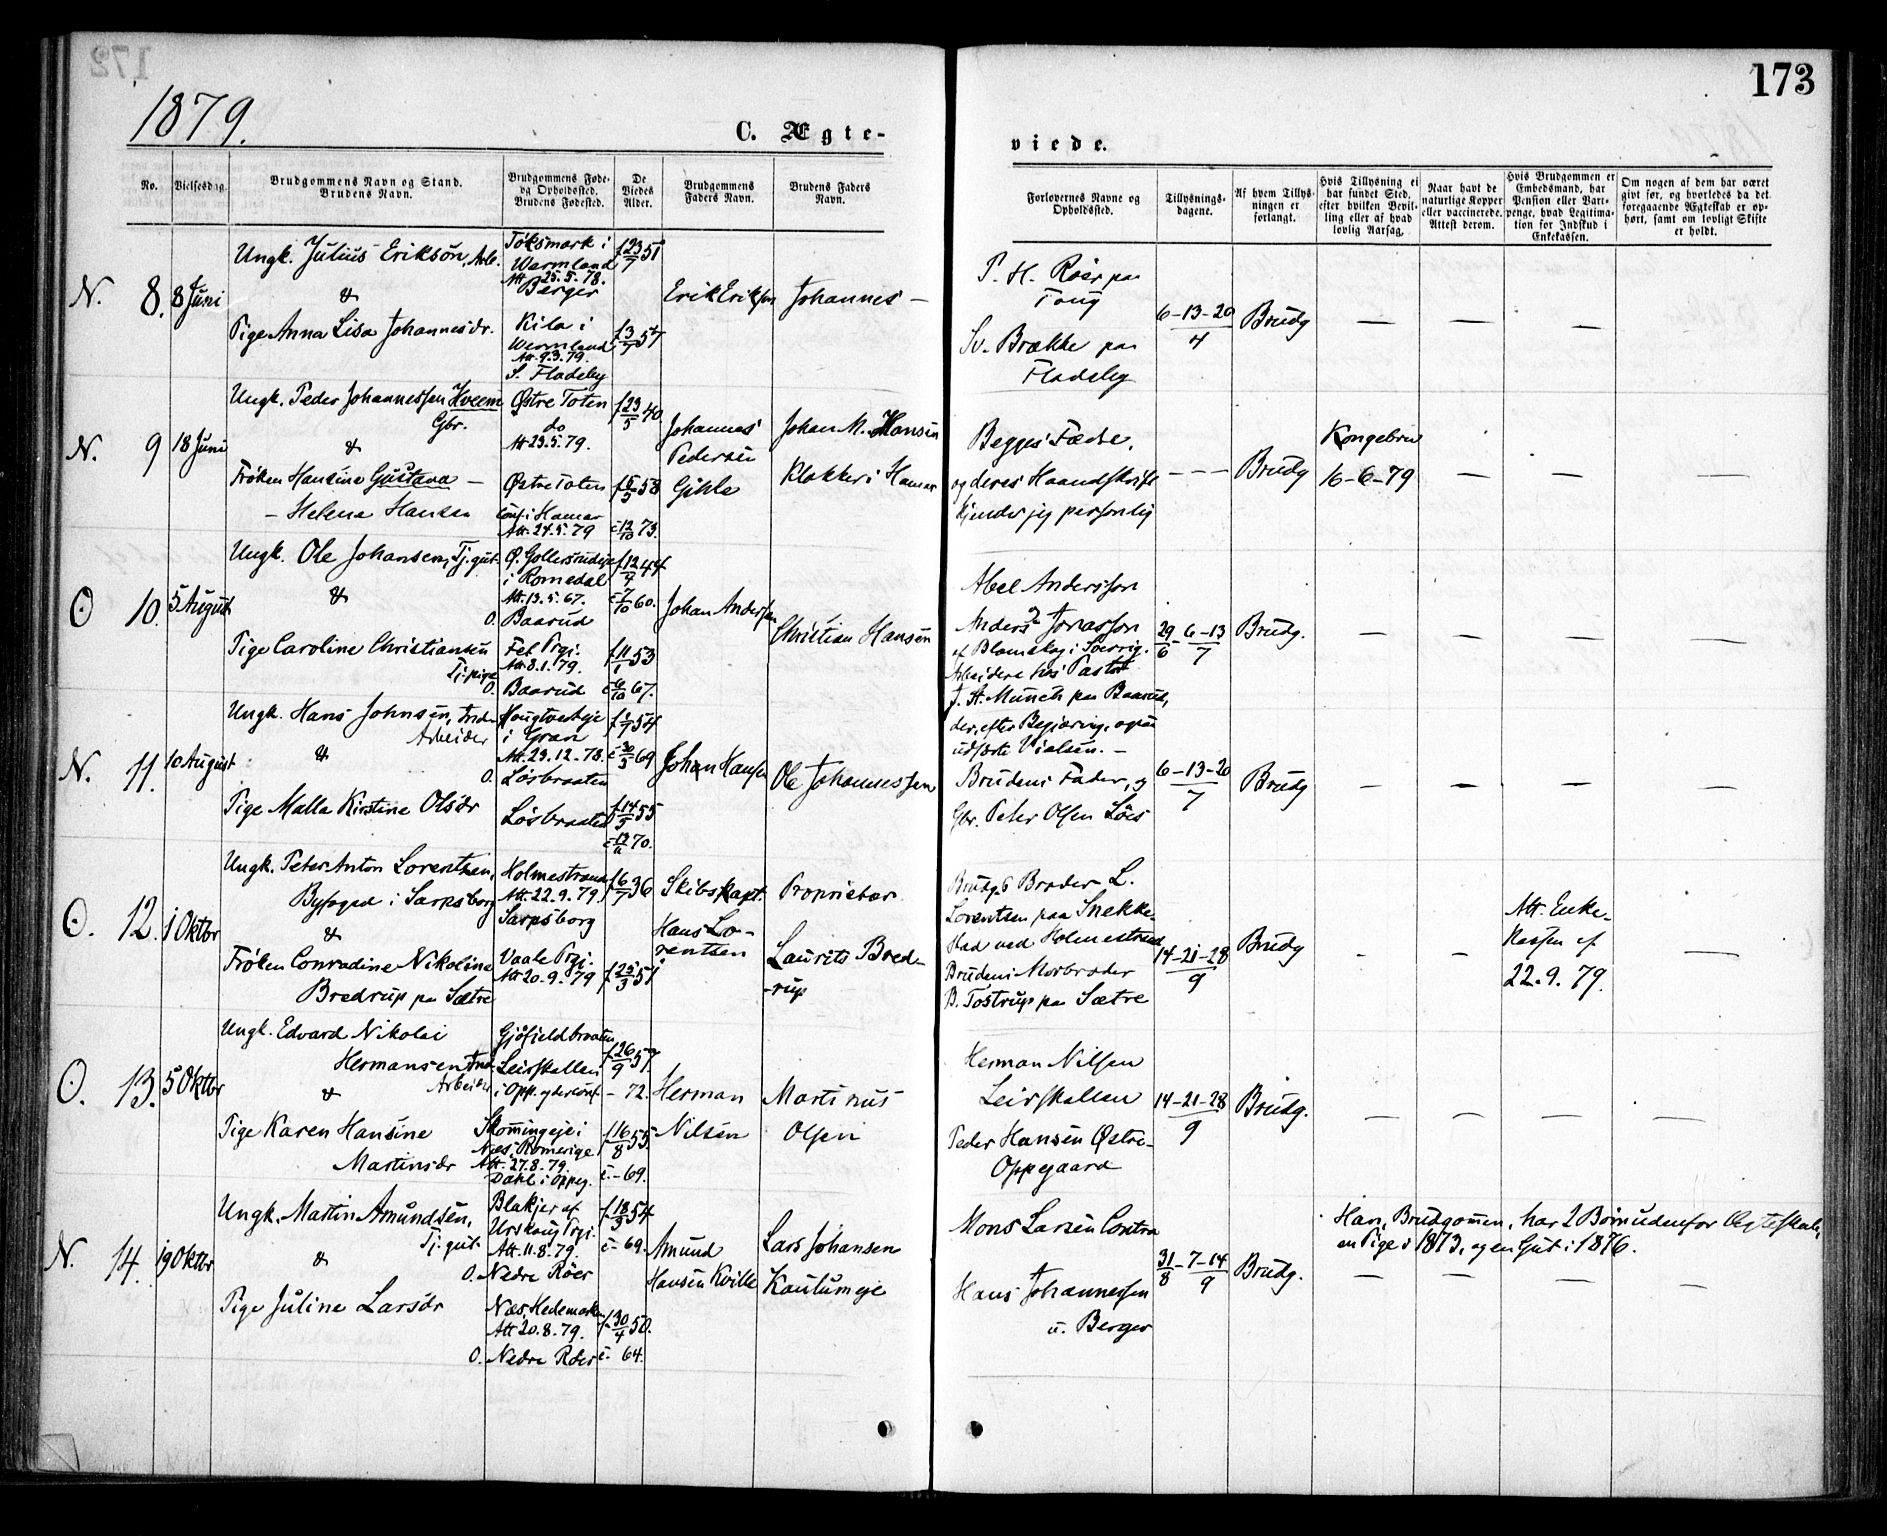 172
1879.
C. Ægte-
No.
Vielsesdag.
Brudgommens Navn og Stand.
Brudens Navn.
Brudgommens Føde-
og Opholdssted.
Brudens Fødested.
De
Viedes
Alder.
Brudgommens
Faders Navn.
Brudens Faders
Navn.
N. 8. 8 Juni
Ungk. Julius Erikson, Arb.
&
Pige Anna Lisa Johannesdr.
Töksmark i
Wermland
Att 25.5.78.
Berger
Kila i
Wermland
Att. 9.3.79.
S. Fladeby
f 23/7 51
f 3/7 57
Erik Eriksson
Johannes —
N. 9 18 Juni
Ungk. Peder Johannessen Hveem
Gbr.
&
Frøken Hansine Gustava —
— Helene Hansen
Østre Toten
do
Att 23.5.79.
Østre Toten
conf. i Hamar
Att. 24.5.79
f 23/5 40.
f 15/5 58
c 12/10 73.
Johannes
Pedersen
Gihle
Johan M. Hansen
Klokker i Hamar
O 10. 5 August
Ungk. Ole Johansen, Tj.gut.
&
Pige Caroline Christiansen
Tj.pige
i Romedal
Att. 13.5.67.
O. Baarud
Fet Prgj.
Att. 8.1.79.
O. Baarud
f 12/4 44
c 7/10 60.
f 11/1 53
c 6/10 67.
Johan Andersen
Christian Hansen
N. 11. 10 August
Ungk. Hans Johnsen, Inds.
Arbeider
&
Pige Malla Kirstine Olsdr
i Gran
Att. 23.12.78.
O. Løsbraaten
Løsbraaten
f 1/7 54
c 30/5 69
f 14/5 55
c 13/11 70.
Johan Hansen
Ole Johannessen
O. 12. 1 Oktbr
Ungk. Peter Anton Lorentsen,
Byfoged i Sarpsborg
&
Frøken Conradine Nikoline
Bredrup pa Sætre
Holmestrand
Att. 22.9.79.
Sarpsborg
Vaale Prgj.
Att 20.9.79
f 6/7 36
f 25/3 51
Skibskapt.
Hans Lo-
rentsen
Proprietær
Laurits Bred-
-rup
O. 13. 5 Oktbr
Ungk. Edvard Nikolai
Hermansen Ind.
Arbeider
&
Pige Karen Hansine
Martinsdr
Gjøfjeldbraaten
Leirskallen
i Opp. yder conf.
Skomingeje i
Næs, Romerige
Att. 27.8.79.
Dahl i Oppeg.
f 26/9 57.
- 72.
f 16/8 55.
c - 69.
Herman
Nilsen
Martinus
Olsen
N. 14. 19 Oktbr
Ungk. Martin Amundsen,
Tj.gut.
&
Pige Juline Larsdr
Blakjer af
Urskoug Prgj.
Att. 11.8.79.
O. Nedre Röer
Næs, Hedemarken
Att 20.8.79.
O. Nedre Röer
f 18/3 54
c - 69.
f 30/4 50.
c - 64.
Amund
Hansen Kville
Lars Johansen
Kautumeje
173
viede.
Forlovernes Navne og
Opholdssted.
Tillysnings-
dagene.
Af hvem Tillys-
ningen er
forlangt.
Hvis Tillysning ei
har fundet Sted,
efter hvilken Bevil-
ling eller af hvad
lovlig Aarsag.
Naar havt de
naturlige Kopper
eller vaccinerede.
Attest derom.
Hvis Brudgommen er
Embedsmand, har
Pension eller Vart-
penge, hvad Legitima-
tion for Indskud i
Enkekassen.
Om nogen af dem har været
gift før, og hvorledes da det
foregaaende Ægteskab er op-
hørt, samt om lovligt Skifte
er holdt.
P. H. Röer paa
Toug
Sv. Brække paa
Fladeby
6-13-20/4
Brudg — — — —
Begges Fædre,
og deres Haandskrift
kjender jeg personlig
— — —
Brudg
Kongebrev
16-6-79
— — —
Abel Andersson
Anders Jonasson
af Blomskog i Sverrig.
Arbeidere hos Pastor
J. A. Munch paa Baarud,
der, efter Begjæring, ogsaa
udførte Vielsen. —
29/6 - 6-13/7
Brudg. — — — —
Brudens Fader, og
Gbr. Peter Olsen Löes
6-13-20/7
Brudg — — — —
Brudg.s Broder L.
Lorentsen paa Snekke-
stad ved Holmestrand
Brudens Morbroder
B. Tostrup pa Sætre
14-21-28/9
Brudg - -
Att. Enke-
Kassen af
22.9.79.
—
Herman Nilsen
Leirskallen
Peder Hansen Østre-
Oppegaard
14-21-28/9
Brudg. — — — —
Mons Larsen Contra
Hans Johannessen
u. Berger
31/8 - 7-14/9
Brudg.
Han, Brudgomen, har 2 Börn udenfor Ægteskab,
en Pige i 1873, og en Gut i 1876.
— — — —